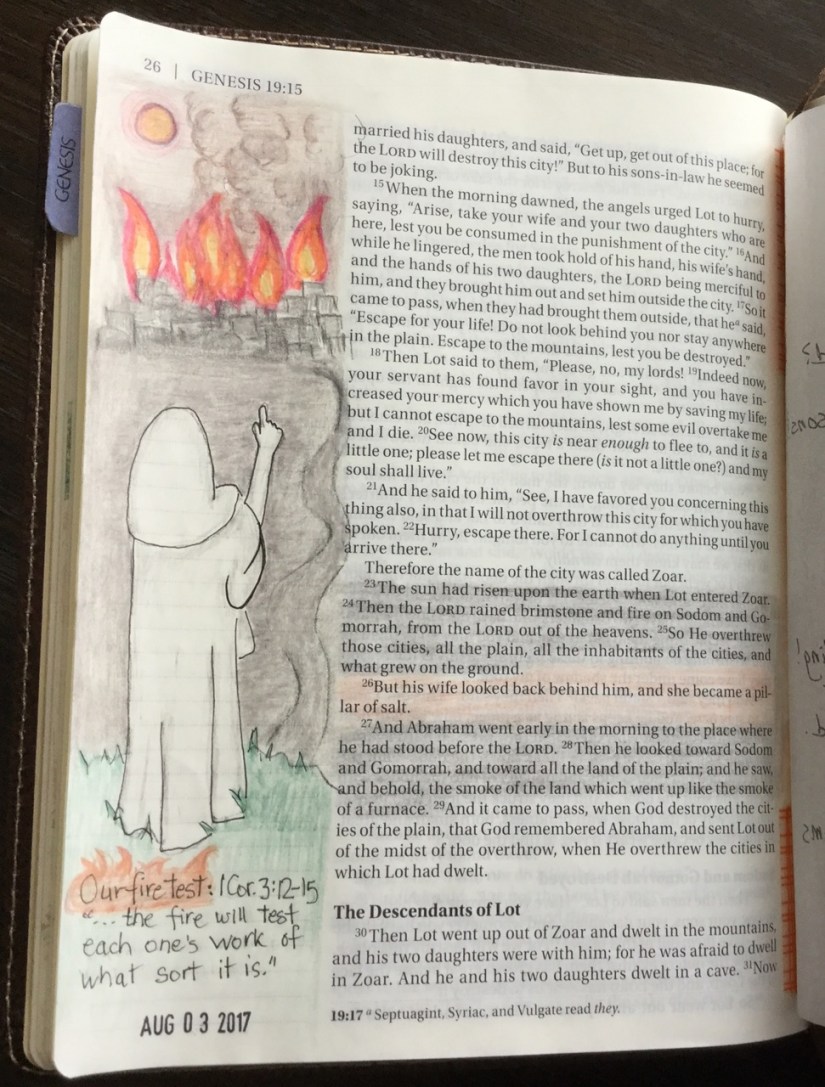 26 | GENESIS 19:15
GENESIS
married his daughters, and said, “Get up, get out of this place; for
the LORD will destroy this city!” But to his sons-in-law he seemed
to be joking.
15When the morning dawned, the angels urged Lot to hurry,
saying, “Arise, take your wife and your two daughters who are
here, lest you be consumed in the punishment of the city.” 16And
while he lingered, the men took hold of his hand, his wife’s hand,
and the hands of his two daughters, the LORD being merciful to
him, and they brought him out and set him outside the city. 17So it
came to pass, when they had brought them outside, that heª said,
“Escape for your life! Do not look behind you nor stay anywhere
in the plain. Escape to the mountains, lest you be destroyed.”
18Then Lot said to them, “Please, no, my lords! 19Indeed now,
your servant has found favor in your sight, and you have in-
creased your mercy which you have shown me by saving my life;
but I cannot escape to the mountains, lest some evil overtake me
and I die. 20See now, this city is near enough to flee to, and it is a
little one; please let me escape there (is it not a little one?) and my
soul shall live.”
21And he said to him, “See, I have favored you concerning this
thing also, in that I will not overthrow this city for which you have
spoken. 22Hurry, escape there. For I cannot do anything until you
arrive there.”
Therefore the name of the city was called Zoar.
23The sun had risen upon the earth when Lot entered Zoar.
24Then the LORD rained brimstone and fire on Sodom and Go-
morrah, from the LORD out of the heavens. 25So He overthrew
those cities, all the plain, all the inhabitants of the cities, and
what grew on the ground.
26But his wife looked back behind him, and she became a pil-
lar of salt.
27And Abraham went early in the morning to the place where
he had stood before the LORD. 28Then he looked toward Sodom
and Gomorrah, and toward all the land of the plain; and he saw,
and behold, the smoke of the land which went up like the smoke
of a furnace. 29And it came to pass, when God destroyed the cit-
ies of the plain, that God remembered Abraham, and sent Lot out
of the midst of the overthrow, when He overthrew the cities in
which Lot had dwelt.
The Descendants of Lot
30Then Lot went up out of Zoar and dwelt in the mountains,
and his two daughters were with him; for he was afraid to dwell
in Zoar. And he and his two daughters dwelt in a cave. 31Now
19:17 ª Septuagint, Syriac, and Vulgate read they.
Our fire test: 1 Cor. 3:12-15
“... the fire will test
each one's work of
what sort it is."
AUG 03 2017